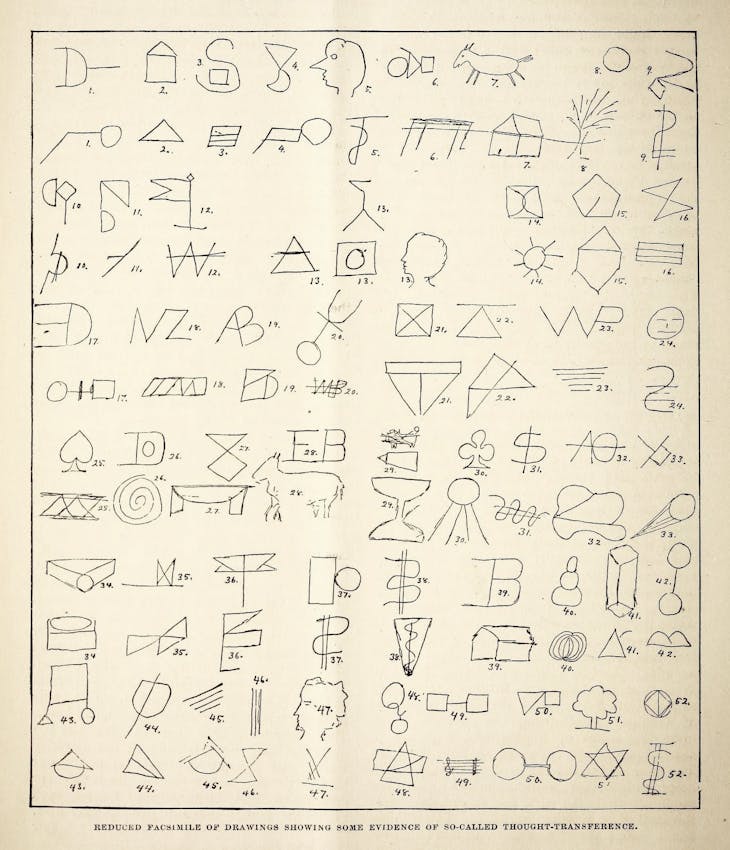 D 1. 2. 3. S 4. 5. 6. 7. 8. 9.
1. 2. 3. 4. 5. 6. 7. 8 9.
10 11. D 12. 13. 14. 15. 16
10. 11. W 12. 13. 13. 13. 14. 15. 16.
D 17. NZ 18. AB 19. 20. 21. 22. WP 23. 24.
17. 18. D 19. WB 20. 21. 22. 23. 24.
25. D 26. 27. EB 28. 29. 30. $ 31. AO 32. 33.
25. 26. 27. 28. 29. 30. 31. 32 33.
34. 35. 36. 37. 38. B 39. 40. 41. 42.
34 35. F 36. 37. 38. 39. 40. 41. 42.
43. 44. 45. 46. 47. 48. 49. 50. 51. 52.
43. 44. 45. 46. 47. 48. 49. 50. 51 52.
REDUCED FACSIMILE OF DRAWINGS SHOWING SOME EVIDENCE OF SO-CALLED THOUGHT-TRANSFERENCE.